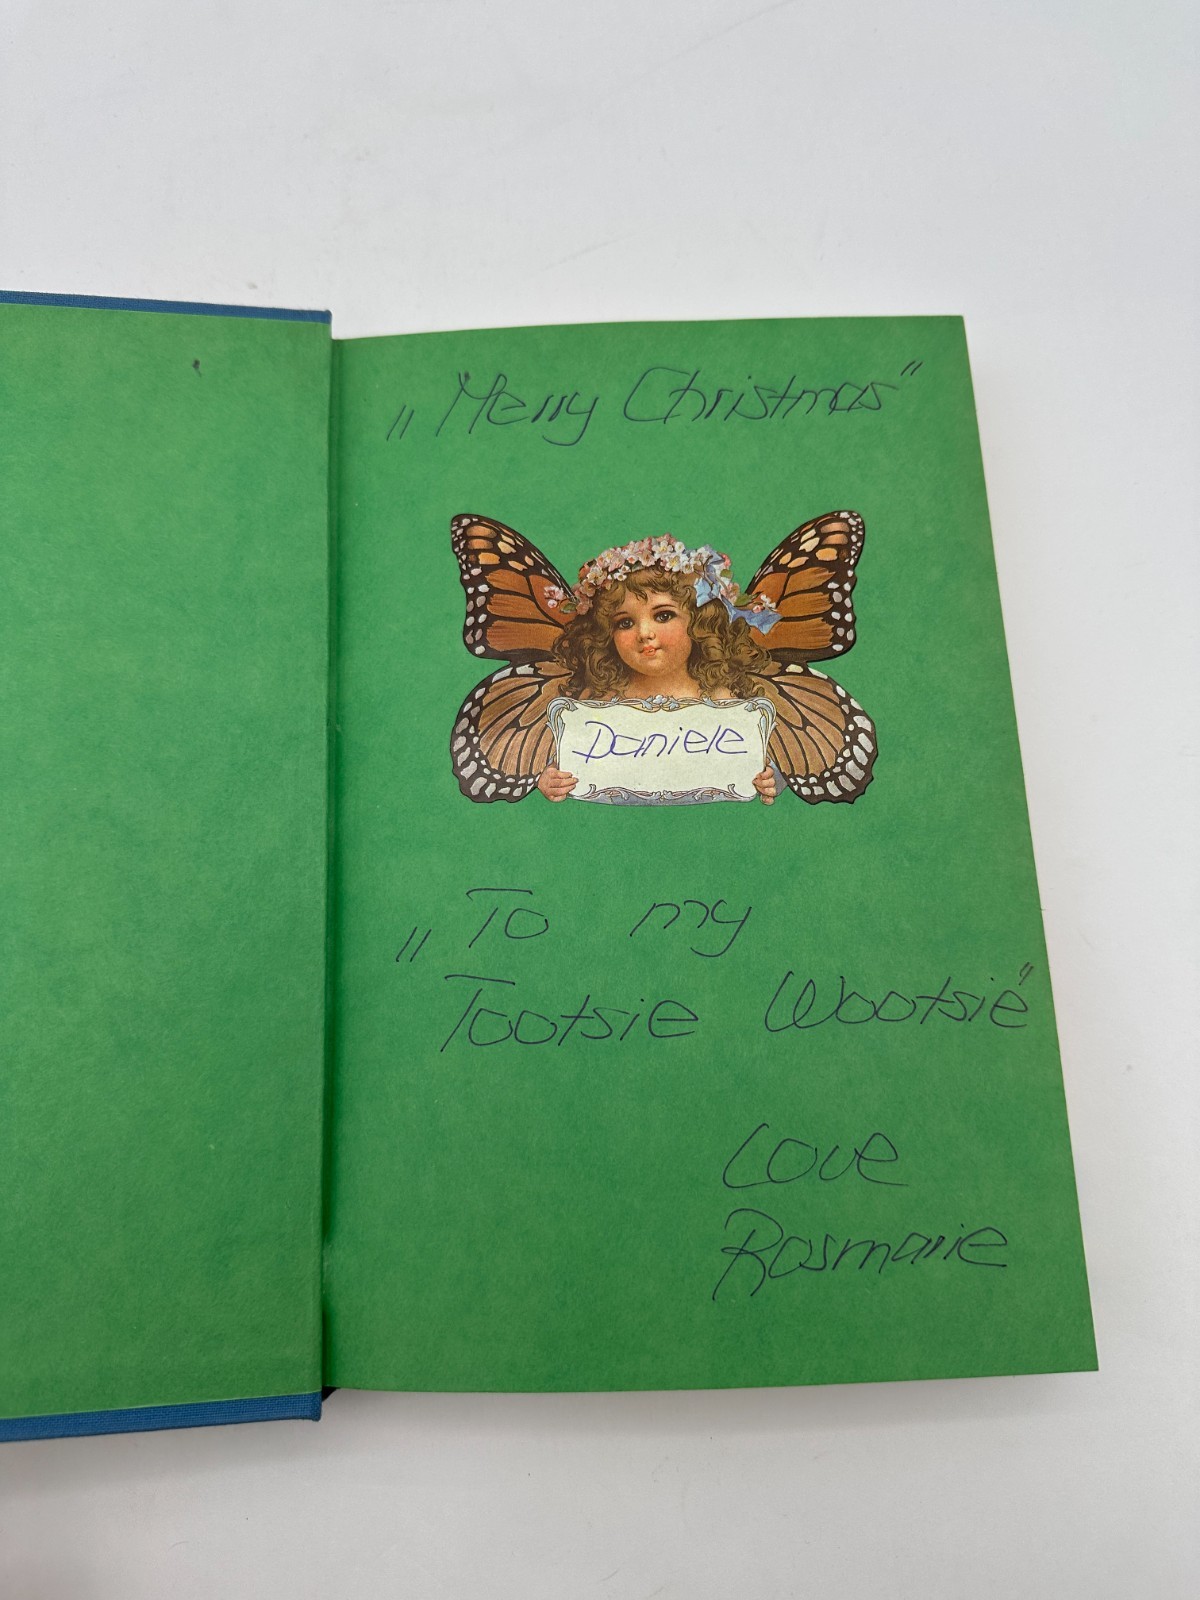 „Merry Christmas"
Daniele
„To my
Tootsie Wootsie"
Love
Rosmarie